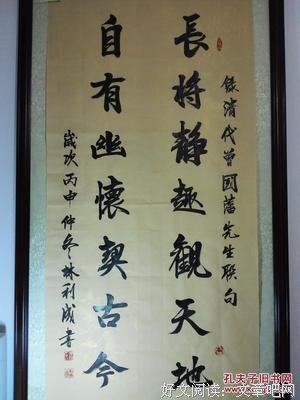 錄清代曾國藩先生聯句
長將靜趣觀天地
自有幽懷契古今
歲次丙申仲冬林利成書
孔夫子旧书网
好文阅读:文章吧网